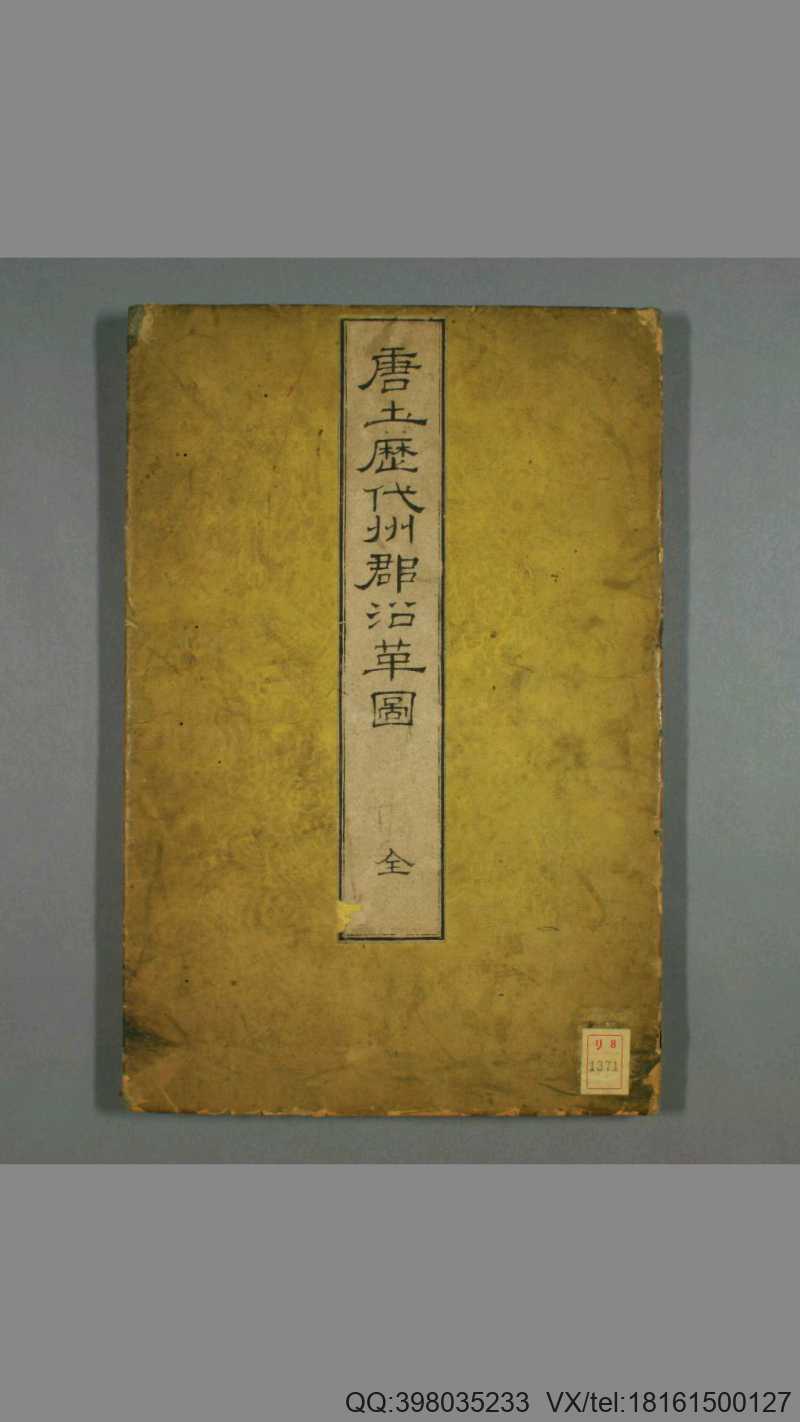 唐土歷代州郡沿革圖
全
リ 8
1371
QQ:398035233  VX/tel:18161500127